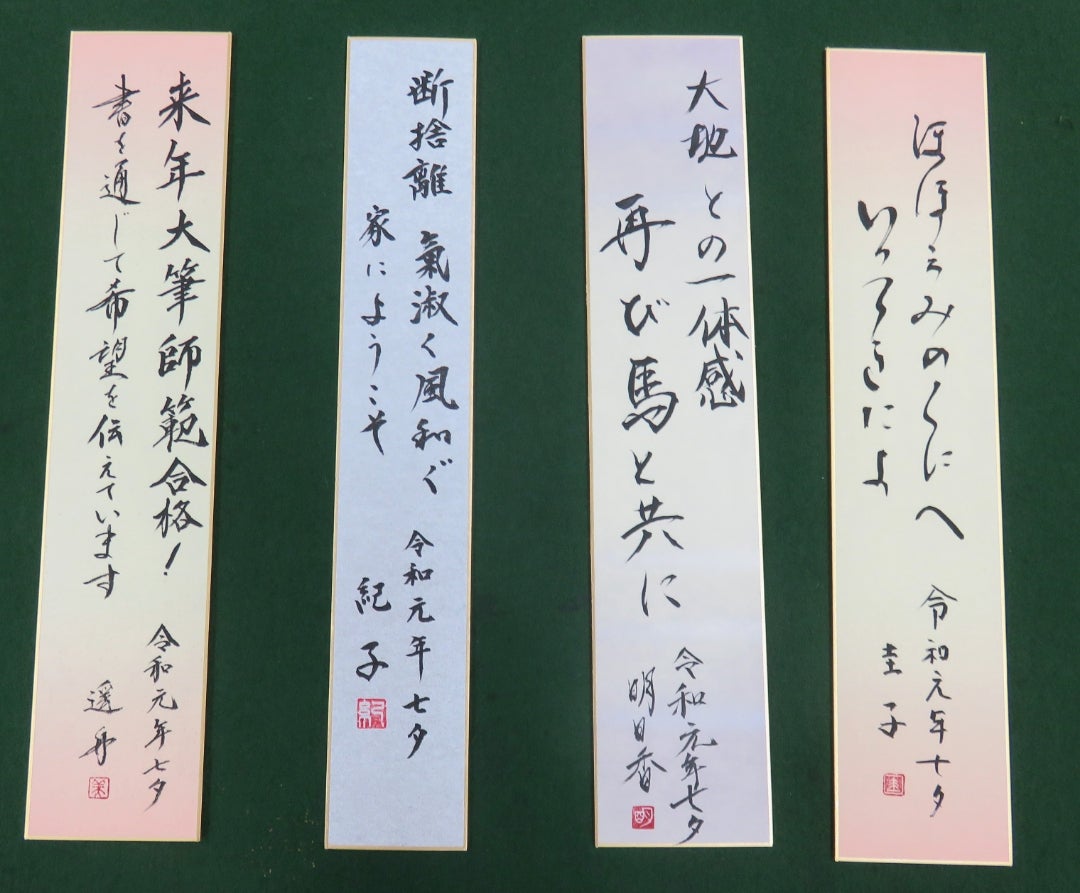 ほほゑみのくにへ
いってきたよ
令和元年七夕
圭子
大地との一体感
再び馬と共に
令和元年七夕
明日香
断捨離 氣淑く風和ぐ
家にようこそ
令和元年七夕
紀子
来年大筆師範合格！
書を通じて希望を伝えています
令和元年七夕
遥舟